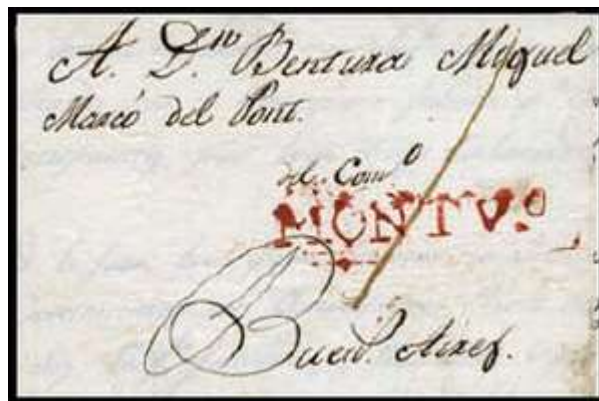 A. Dⁿ Bentura Miguel
Marcó del Pont.
del Comº
MONTVº
Buenˢ Airesˢ.